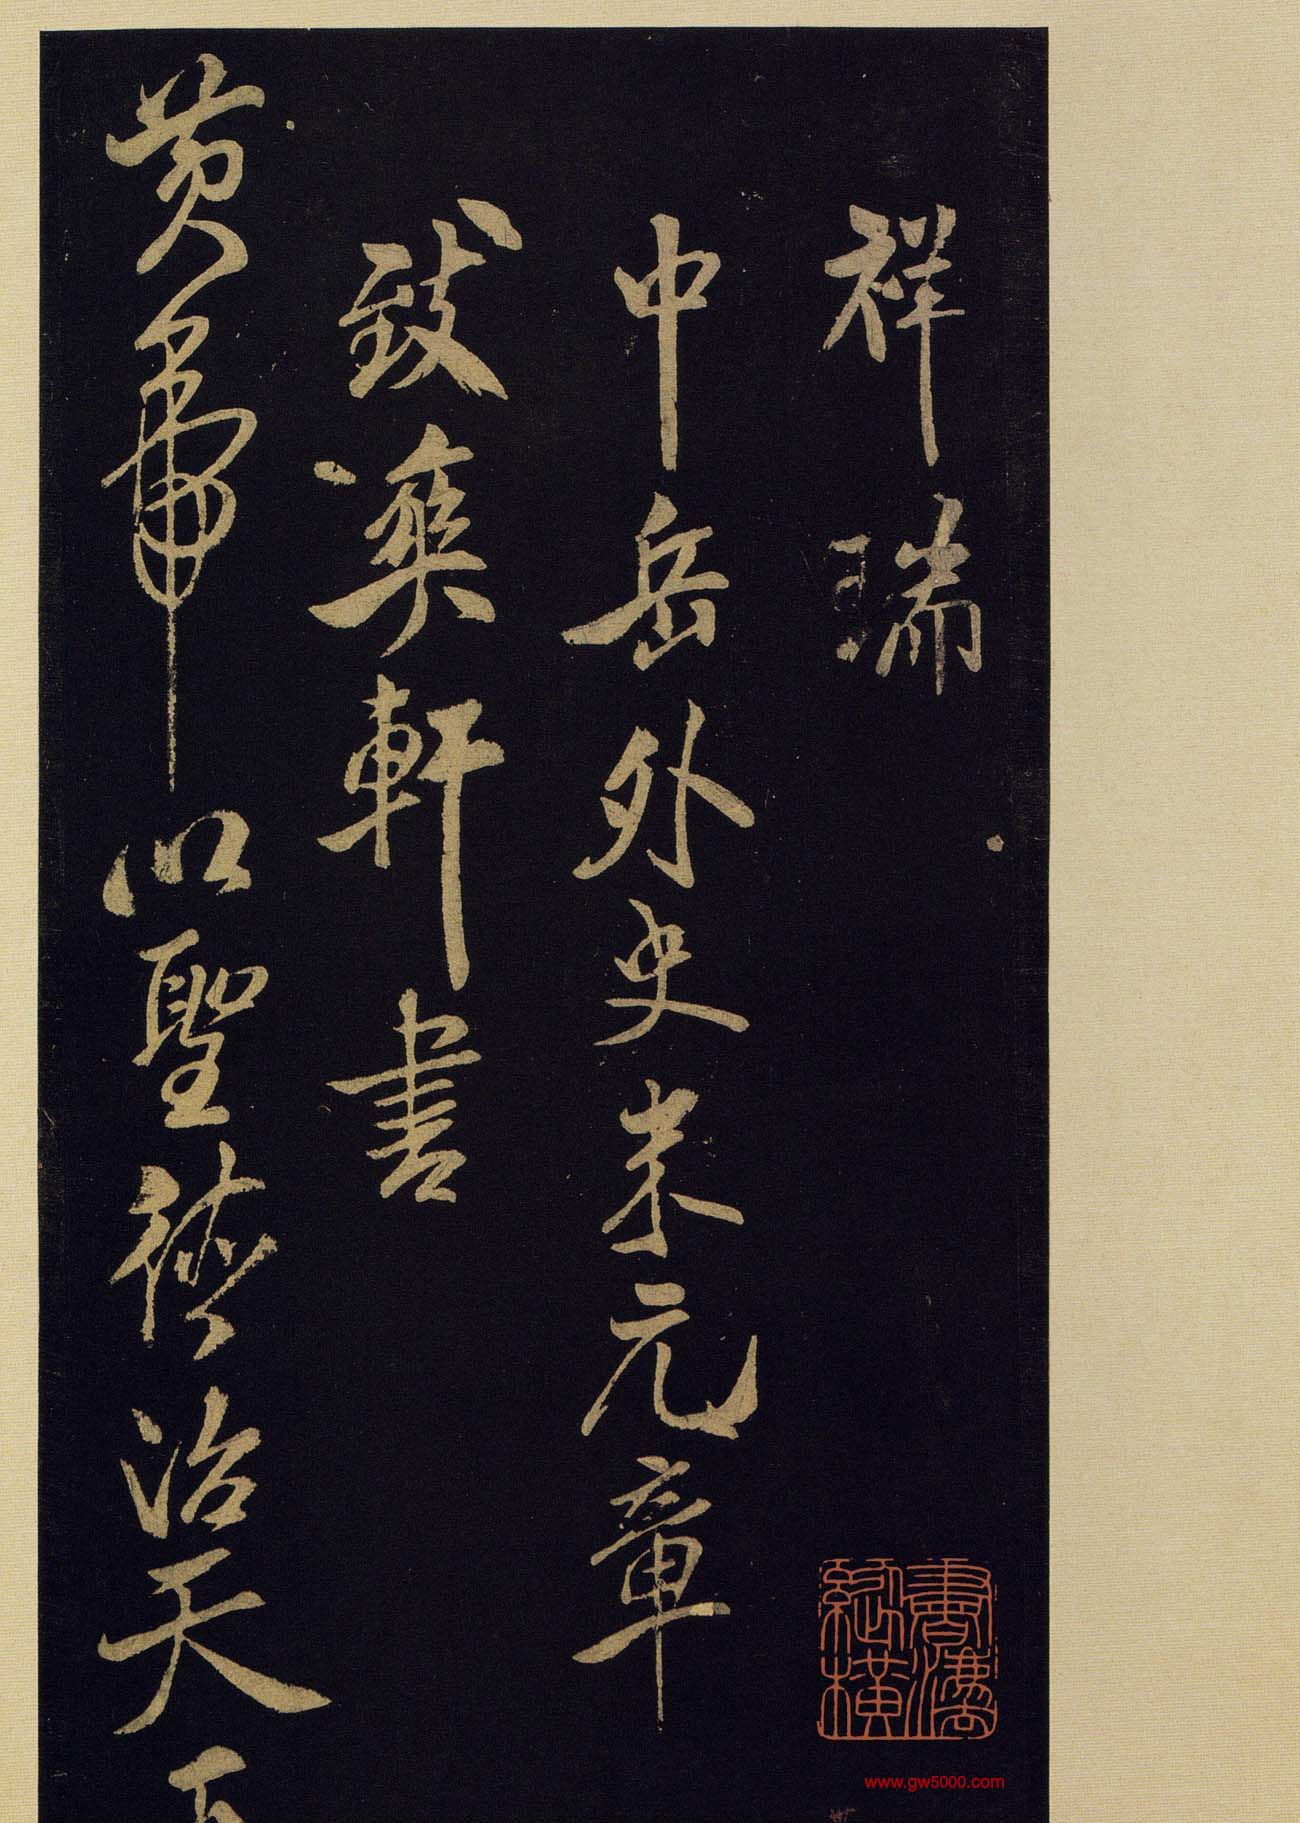 祥瑞
中岳外史米元章
致爽軒書
黄帝以聖德治天下
書溝縱橫
www.gw5000.com